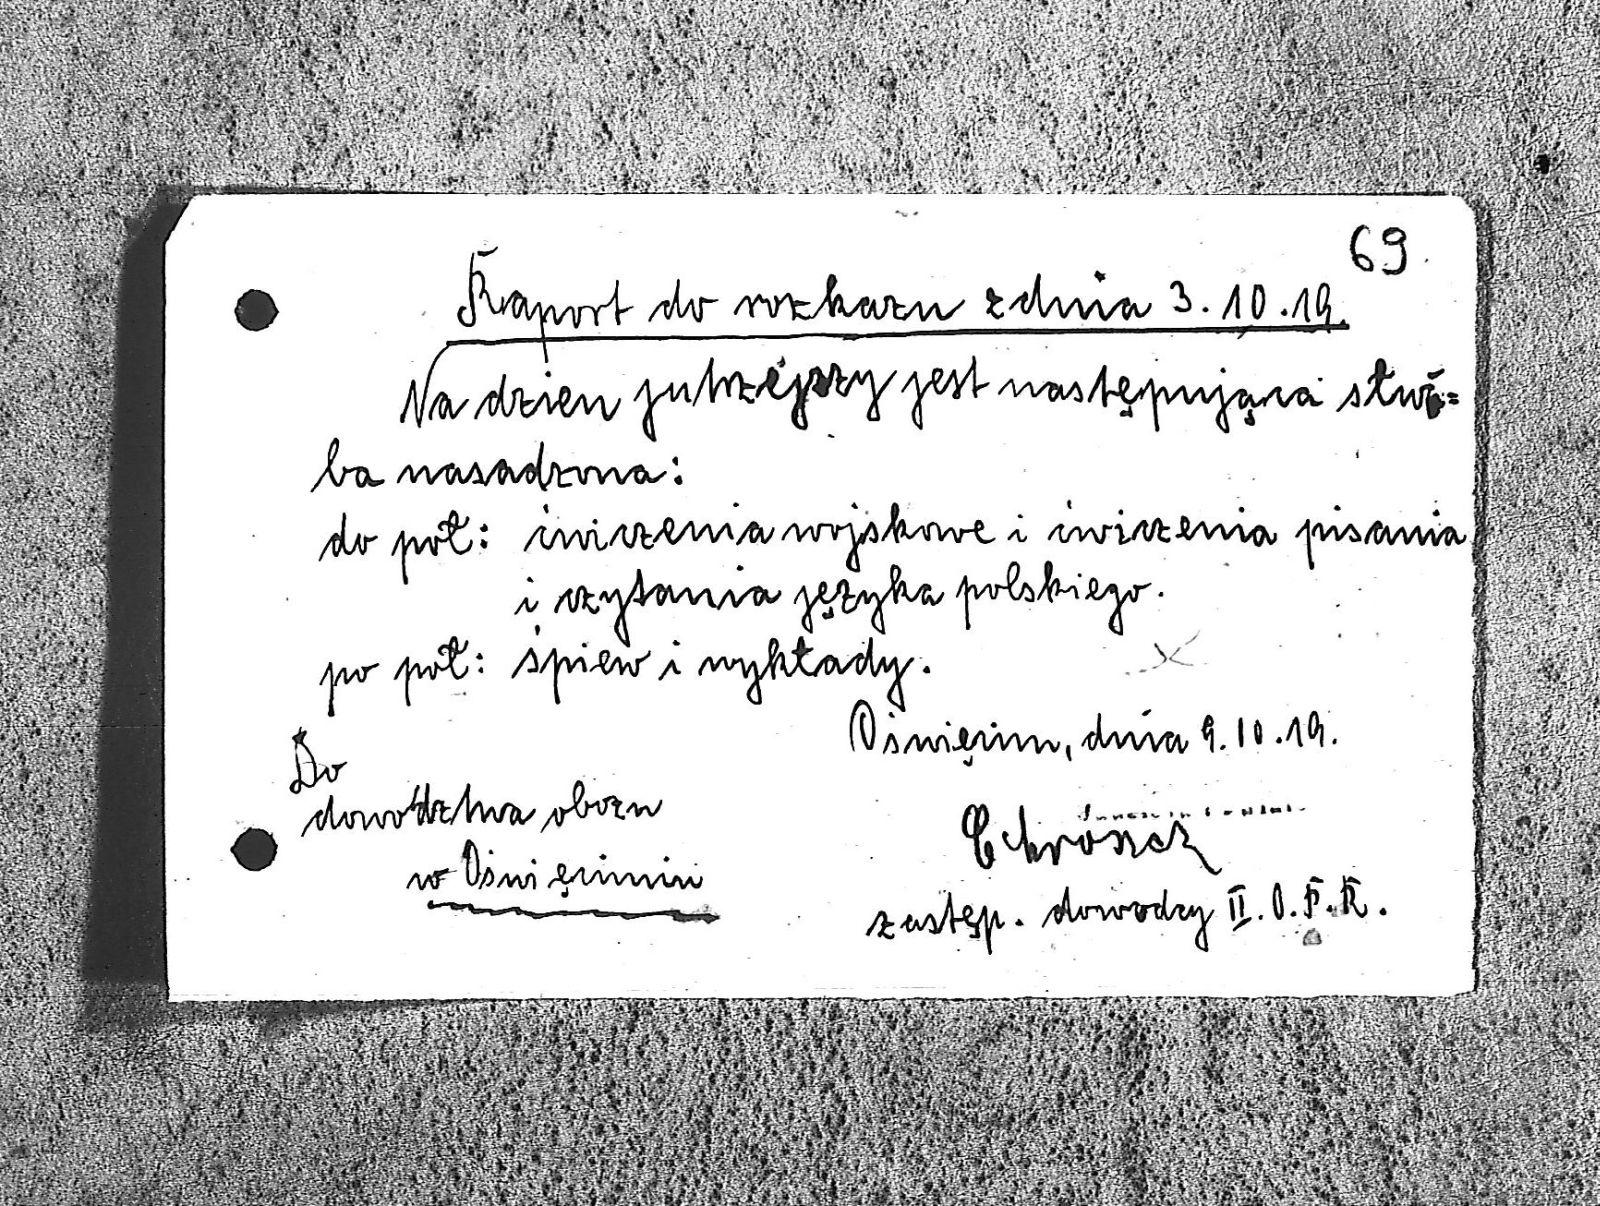 69
Raport do rozkazu z dnia 3.10.19.
Na dzien jutrzejszy jest następująca służ=
ba nasadzona:
do poł: ćwiczenia wojskowe i ćwiczenia pisania
i czytania języka polskiego.
po poł: śpiew i wykłady.
Oświęcim, dnia 9.10.19.
Do
dowództwa obozu
w Oświęcimiu
zastęp. dowodzy II.O.P.K.